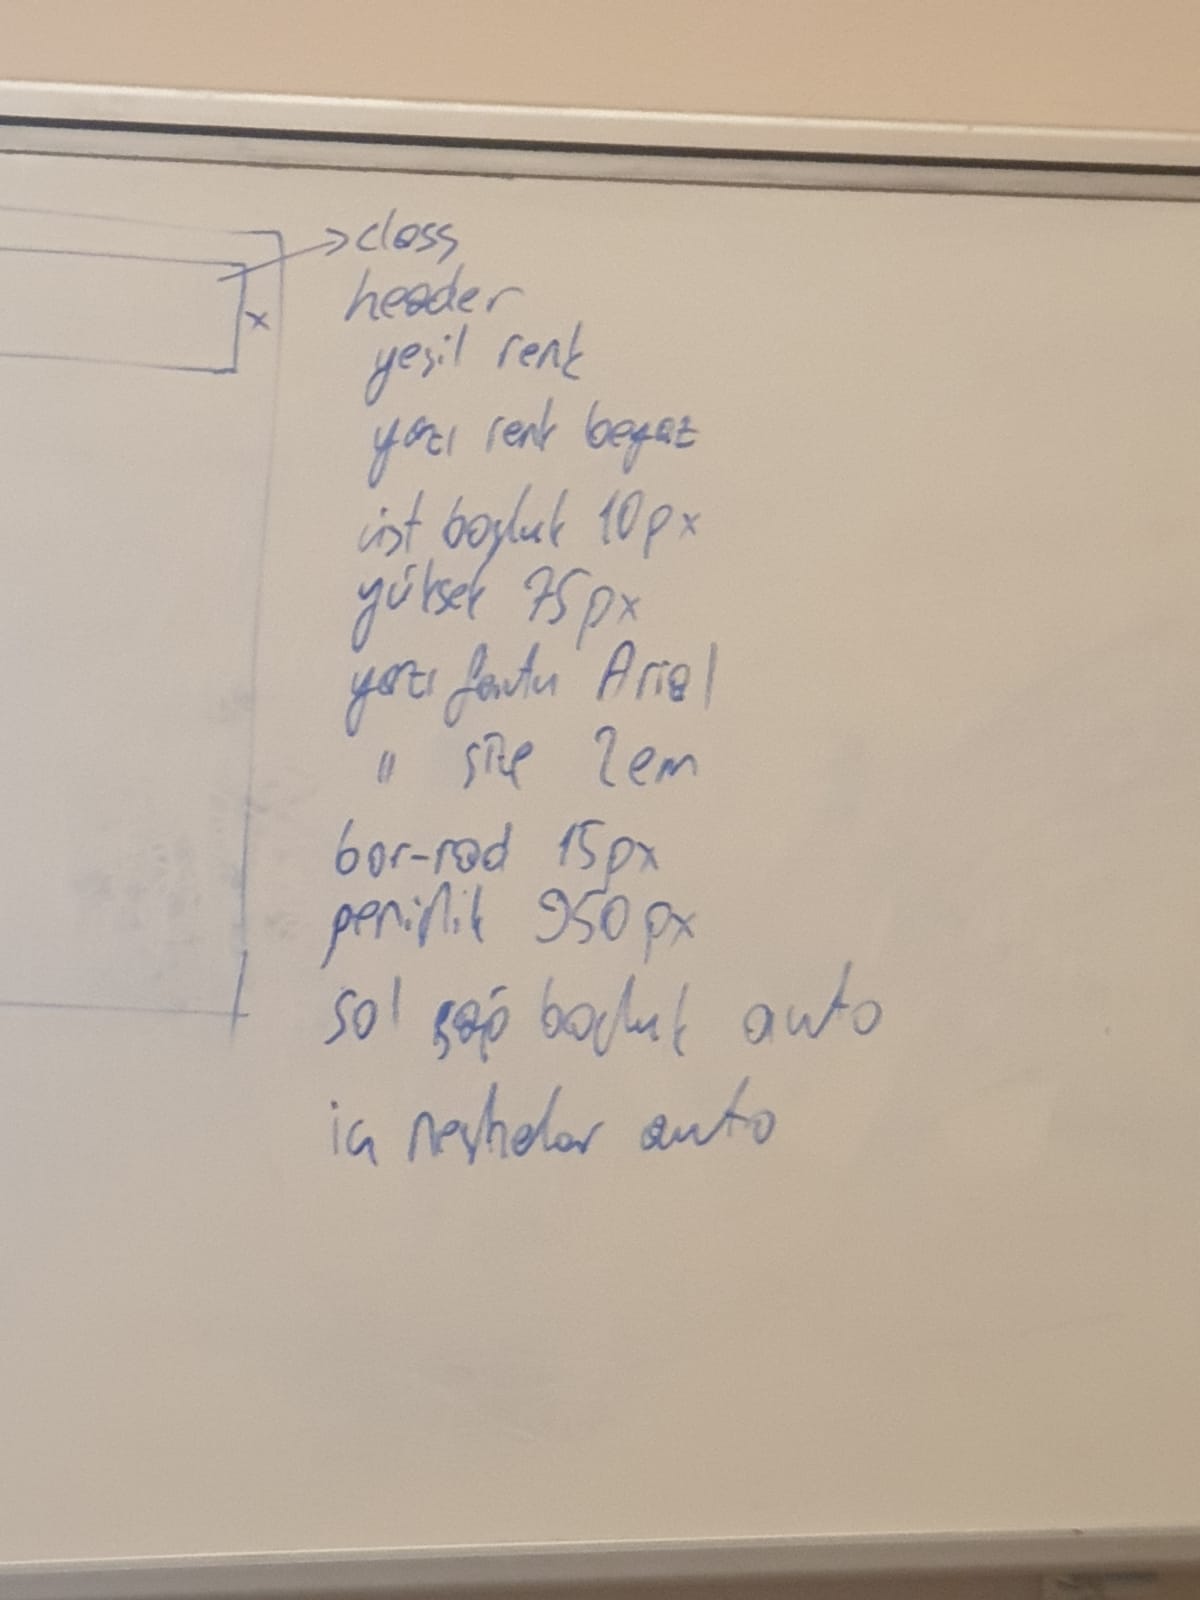 class
header
yeşil renk
yazı renk beyaz
üst boşluk 10px
yüksek 75px
yazı fontu Arial
" size 2em
bor-rad 15px
genişlik 950px
sol sağ boşluk auto
iç auto
x